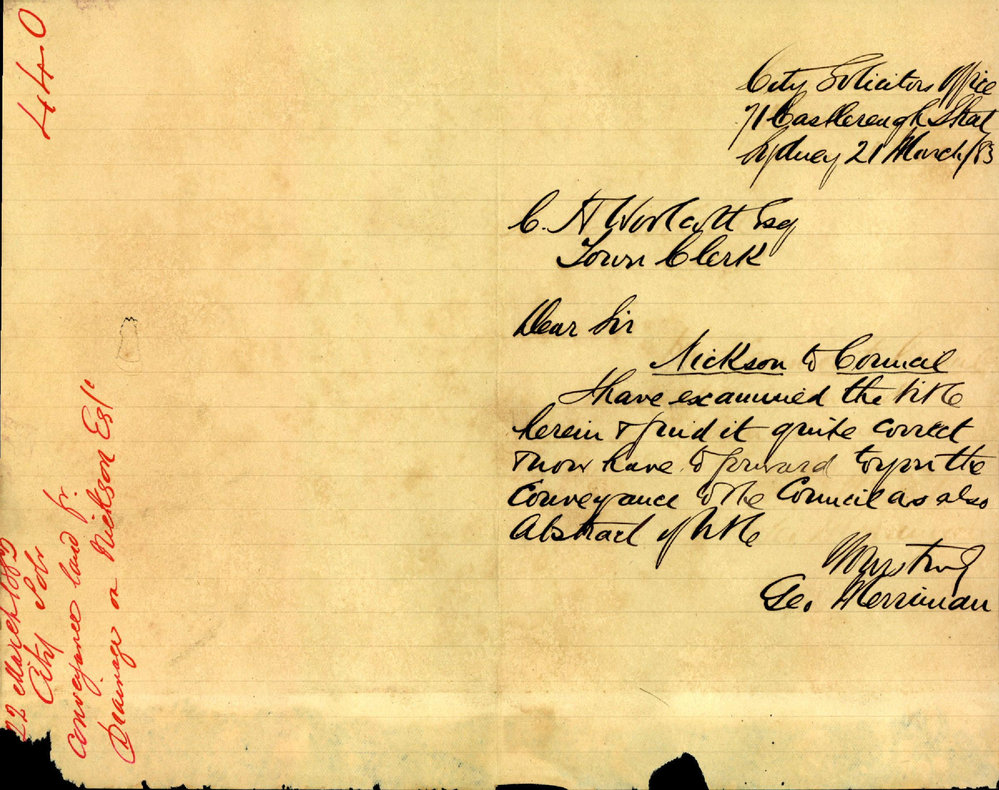 440
22 March 1883
City Solr
Conveyance land fr.
Drainage on Nickson Este
City Solicitors Office
71 Castlereagh Street
Sydney 21 March/83
C. H Woolcott Esq
Town Clerk
Dear Sir
Nickson to Council
I have examined the title
herein & find it quite correct
& now have to forward to you the
Conveyance to the Council as also
Abstract of title
Yours truly
Geo. Merriman